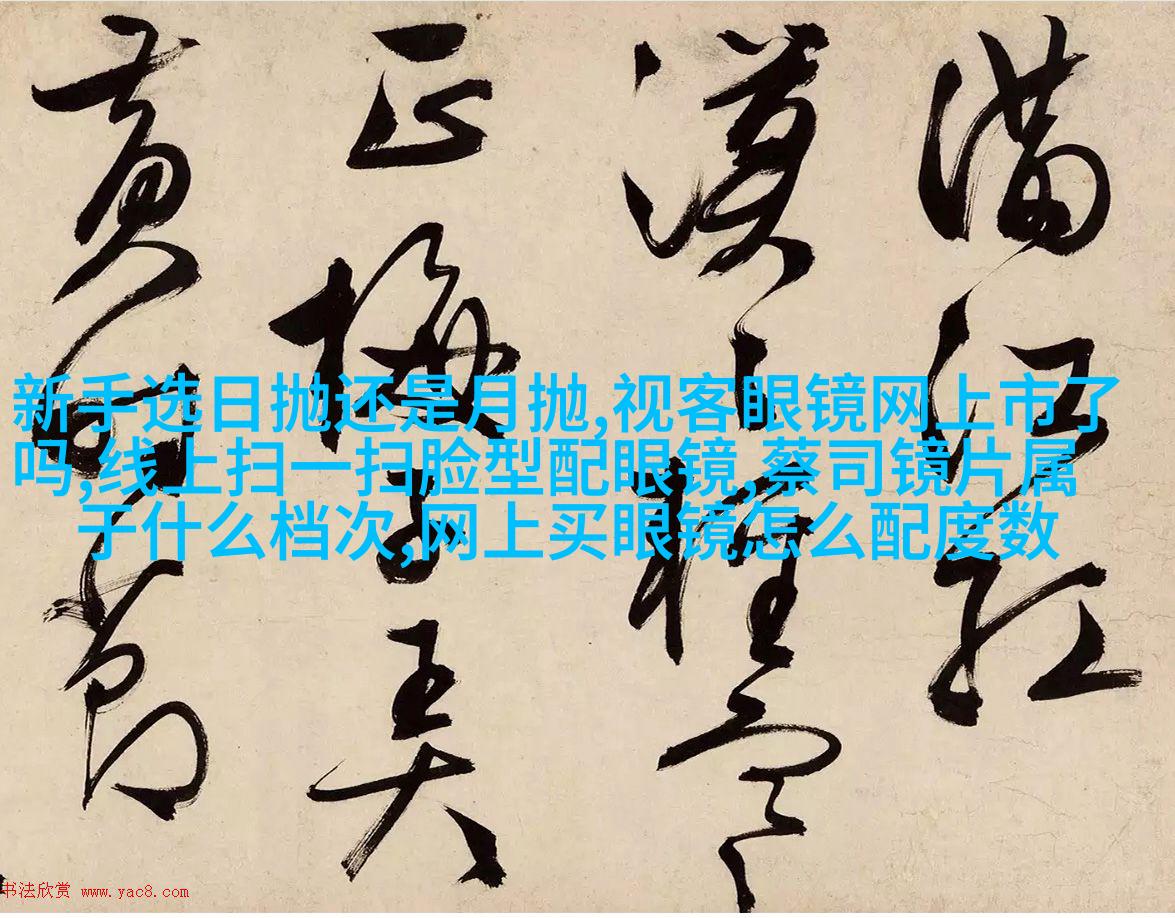 滿江紅
漠〻輕寒
正梅子弄
黃時節
新手选日抛还是月抛,视客眼镜网上市了
吗,线上扫一扫脸型配眼镜,蔡司镜片属
于什么档次,网上买眼镜怎么配度数
书法欣赏 www.yac8.com